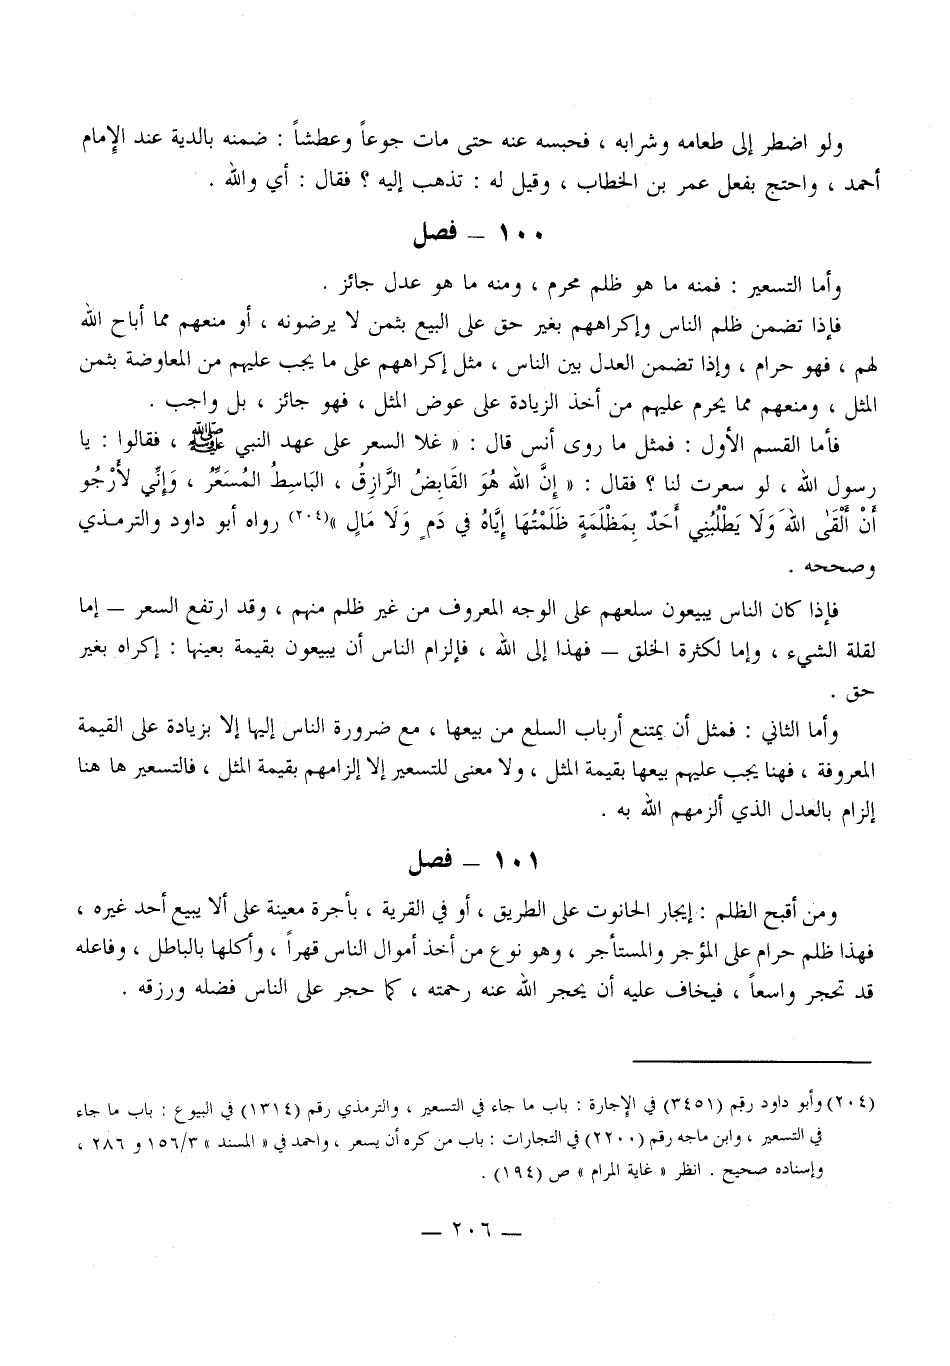 ولو اضطر إلى طعامه وشرابه ، فحبسه عنه حتى مات جوعاً وعطشاً : ضمنه بالدية عند الإمام
أحمد ، واحتج بفعل عمر بن الخطاب ، وقيل له : تذهب إليه ؟ فقال : أي والله .
١٠٠ – فصل
وأما التسعير : فمنه ما هو ظلم محرم ، ومنه ما هو عدل جائز .
فإذا تضمن ظلم الناس وإكراههم بغير حق على البيع بثمن لا يرضونه ، أو منعهم مما أباح الله
لهم ، فهو حرام ، وإذا تضمن العدل بين الناس ، مثل إكراههم على ما يجب عليهم من المعاوضة بثمن
المثل ، ومنعهم مما يحرم عليهم من أخذ الزيادة على عوض المثل ، فهو جائز ، بل واجب .
فأما القسم الأول : فمثل ما روى أنس قال : « غلا السعر على عهد النبي ﷺ ، فقالوا : يا
رسول الله ، لو سعرت لنا ؟ فقال : « إِنَّ الله هُوَ القَابِضُ الرَّازِقُ ، البَاسِطُ المُسَعِّرُ ، وَإِنِّي لأَرْجُو
أَنْ أَلْقَى اللهَ وَلَا يَطْلُبُنِي أَحَدٌ بِمَظْلَمَةٍ ظَلَمْتُهَا إِيَّاهُ فِي دَمٍ وَلَا مَالٍ »(٢٠٤) رواه أبو داود والترمذي
وصححه .
فإذا كان الناس يبيعون سلعهم على الوجه المعروف من غير ظلم منهم ، وقد ارتفع السعر – إما
لقلة الشيء ، وإما لكثرة الخلق – فهذا إلى الله ، فإلزام الناس أن يبيعون بقيمة بعينها : إكراه بغير
حق .
وأما الثاني : فمثل أن يمتنع أرباب السلع من بيعها ، مع ضرورة الناس إليها إلا بزيادة على القيمة
المعروفة ، فهنا يجب عليهم بيعها بقيمة المثل ، ولا معنى للتسعير إلا إلزامهم بقيمة المثل ، فالتسعير ها هنا
إلزام بالعدل الذي ألزمهم الله به .
١٠١ – فصل
ومن أقبح الظلم : إيجار الحانوت على الطريق ، أو في القرية ، بأجرة معينة على ألا يبيع أحد غيره ،
فهذا ظلم حرام على المؤجر والمستأجر ، وهو نوع من أخذ أموال الناس قهراً ، وأكلها بالباطل ، وفاعله
قد تحجر واسعاً ، فيخاف عليه أن يحجر الله عنه رحمته ، كما حجر على الناس فضله ورزقه .
(٢٠٤) وأبو داود رقم (٣٤٥١) في الإجارة : باب ما جاء في التسعير ، والترمذي رقم (١٣١٤) في البيوع : باب ما جاء
في التسعير ، وابن ماجه رقم (٢٢٠٠) في التجارات : باب من كره أن يسعر ، واحمد في « المسند » ١٥٦/٣ و ٢٨٦ ،
وإسناده صحيح . انظر « غاية المرام » ص (١٩٤) .
– ٢٠٦ –